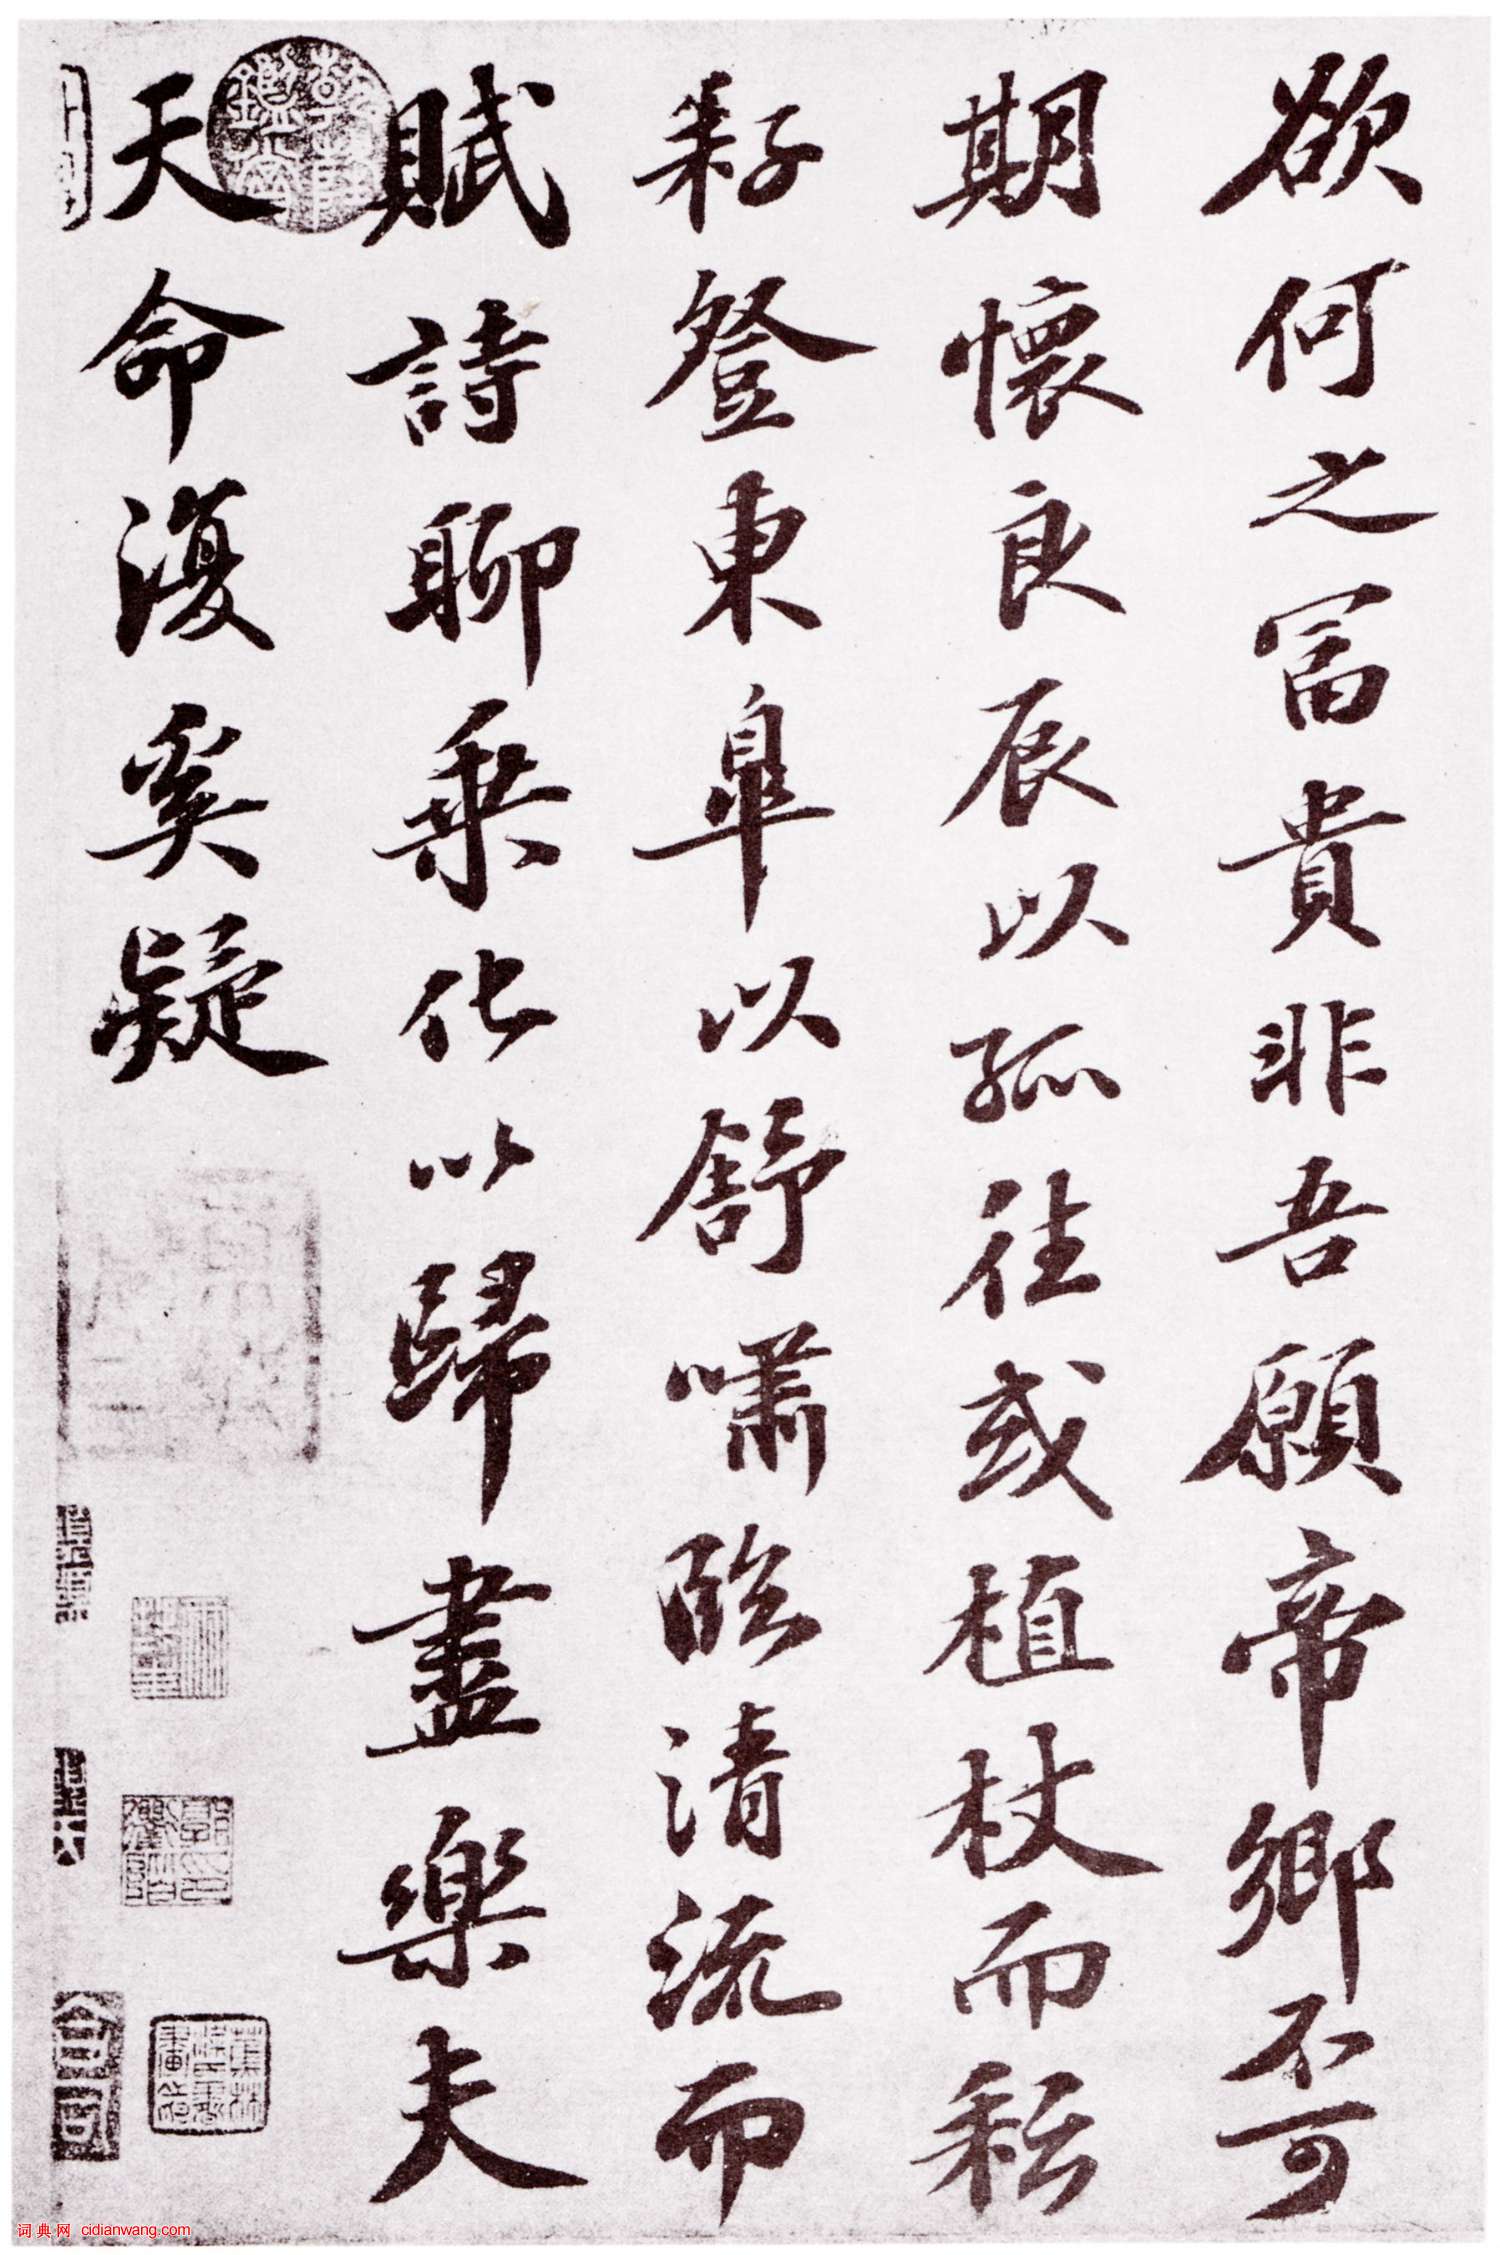 欲何之富貴非吾願帝鄉不可
期懷良辰以孤往或植杖而耘
耔登東皐以舒嘯臨清流而
賦詩聊乗化以歸盡樂夫
天命復奚疑
词典网 cidianwang.com